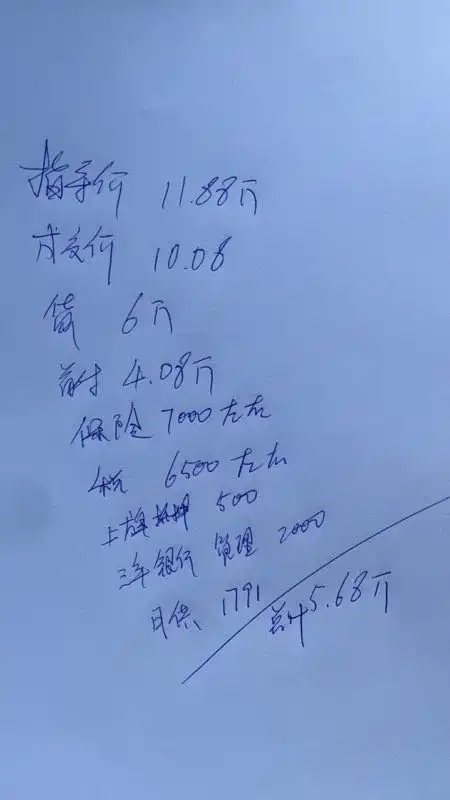 指导价 11.88万
成交价 10.08
贷 6万
首付 4.08万
保险 7000左右
税 6500左右
上牌抵押 500
三年银行管理 2000
月供 1791
总计5.68万